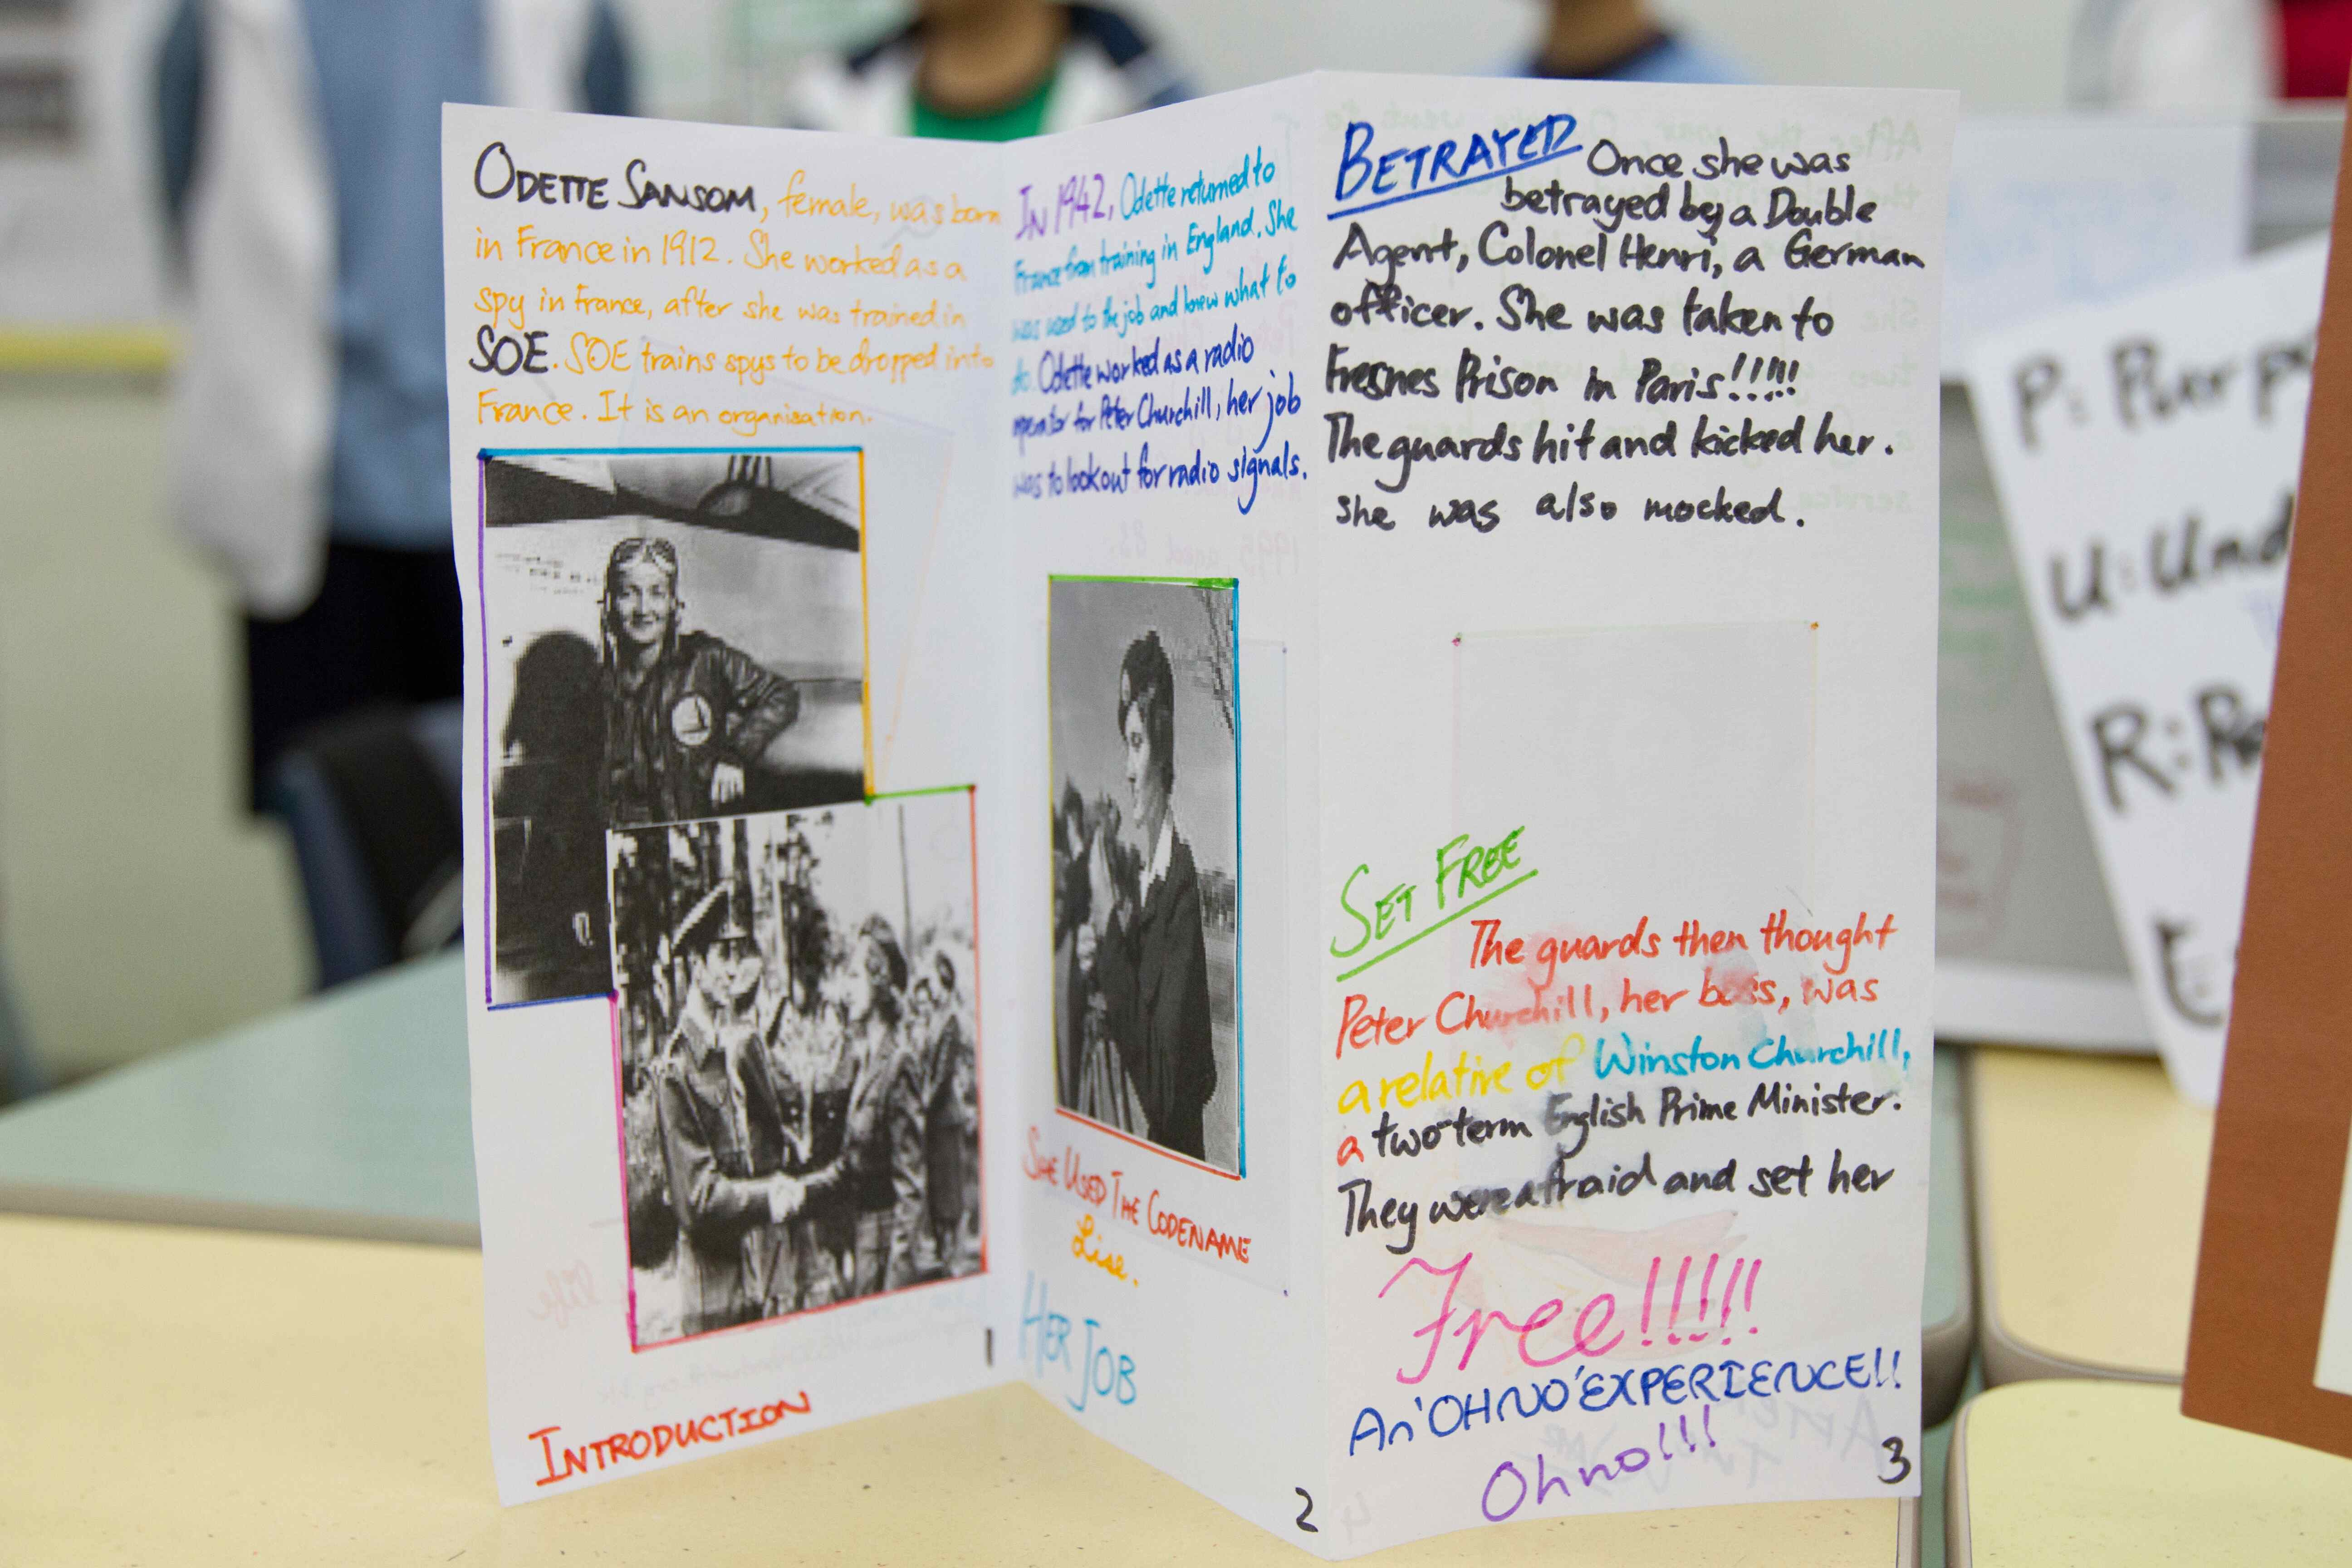 ODETTE SANSOM, female, was born
in France in 1912. She worked as a
spy in France, after she was trained in
SOE. SOE trains spys to be dropped into
France. It is an organisation.
1
INTRODUCTION
IN 1942, Odette returned to
France from training in England. She
was used to the job and knew what to
do. Odette worked as a radio
operator for Peter Churchill, her job
was to lookout for radio signals.
SHE USED THE CODENAME
Lise.
HER JOB
2
BETRAYED Once she was
betrayed by a Double
Agent, Colonel Henri, a German
officer. She was taken to
Fresnes Prison in Paris!!!!!
The guards hit and kicked her.
She was also mocked.
SET FREE
The guards then thought
Peter Churchill, her boss, was
a relative of Winston Churchill,
a two-term English Prime Minister.
They were afraid and set her
Free!!!!!
An 'OH NO' EXPERIENCE!!
Oh no!!!
3
P:
U:
R: